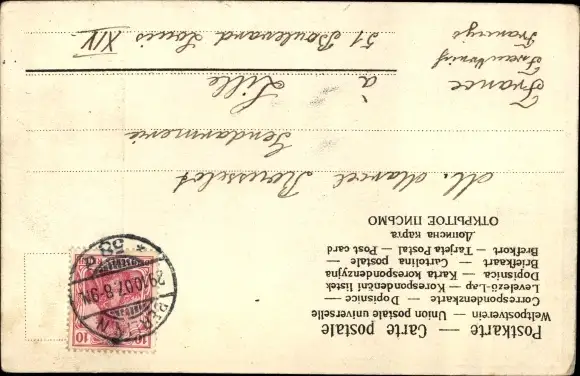 Postkarte — Carte postale
Weltpostverein — Union postale universelle
Correspondenzkarte — Dopisnice —
Levelező-Lap — Korespondenční lístek
Dopisnica — Karta korespondencyjna
Briefkaart — Cartolina postale —
Brefkort — Tarjeta Postal — Post card
Дописна карта
ОТКРЫТОЕ ПИСЬМО
10 10
BERLIN
29.10.07.8-9N.
* 58
M. Marcel Rousselot
Gendarmerie
à Lille
51 Boulevard Louis XIV
France